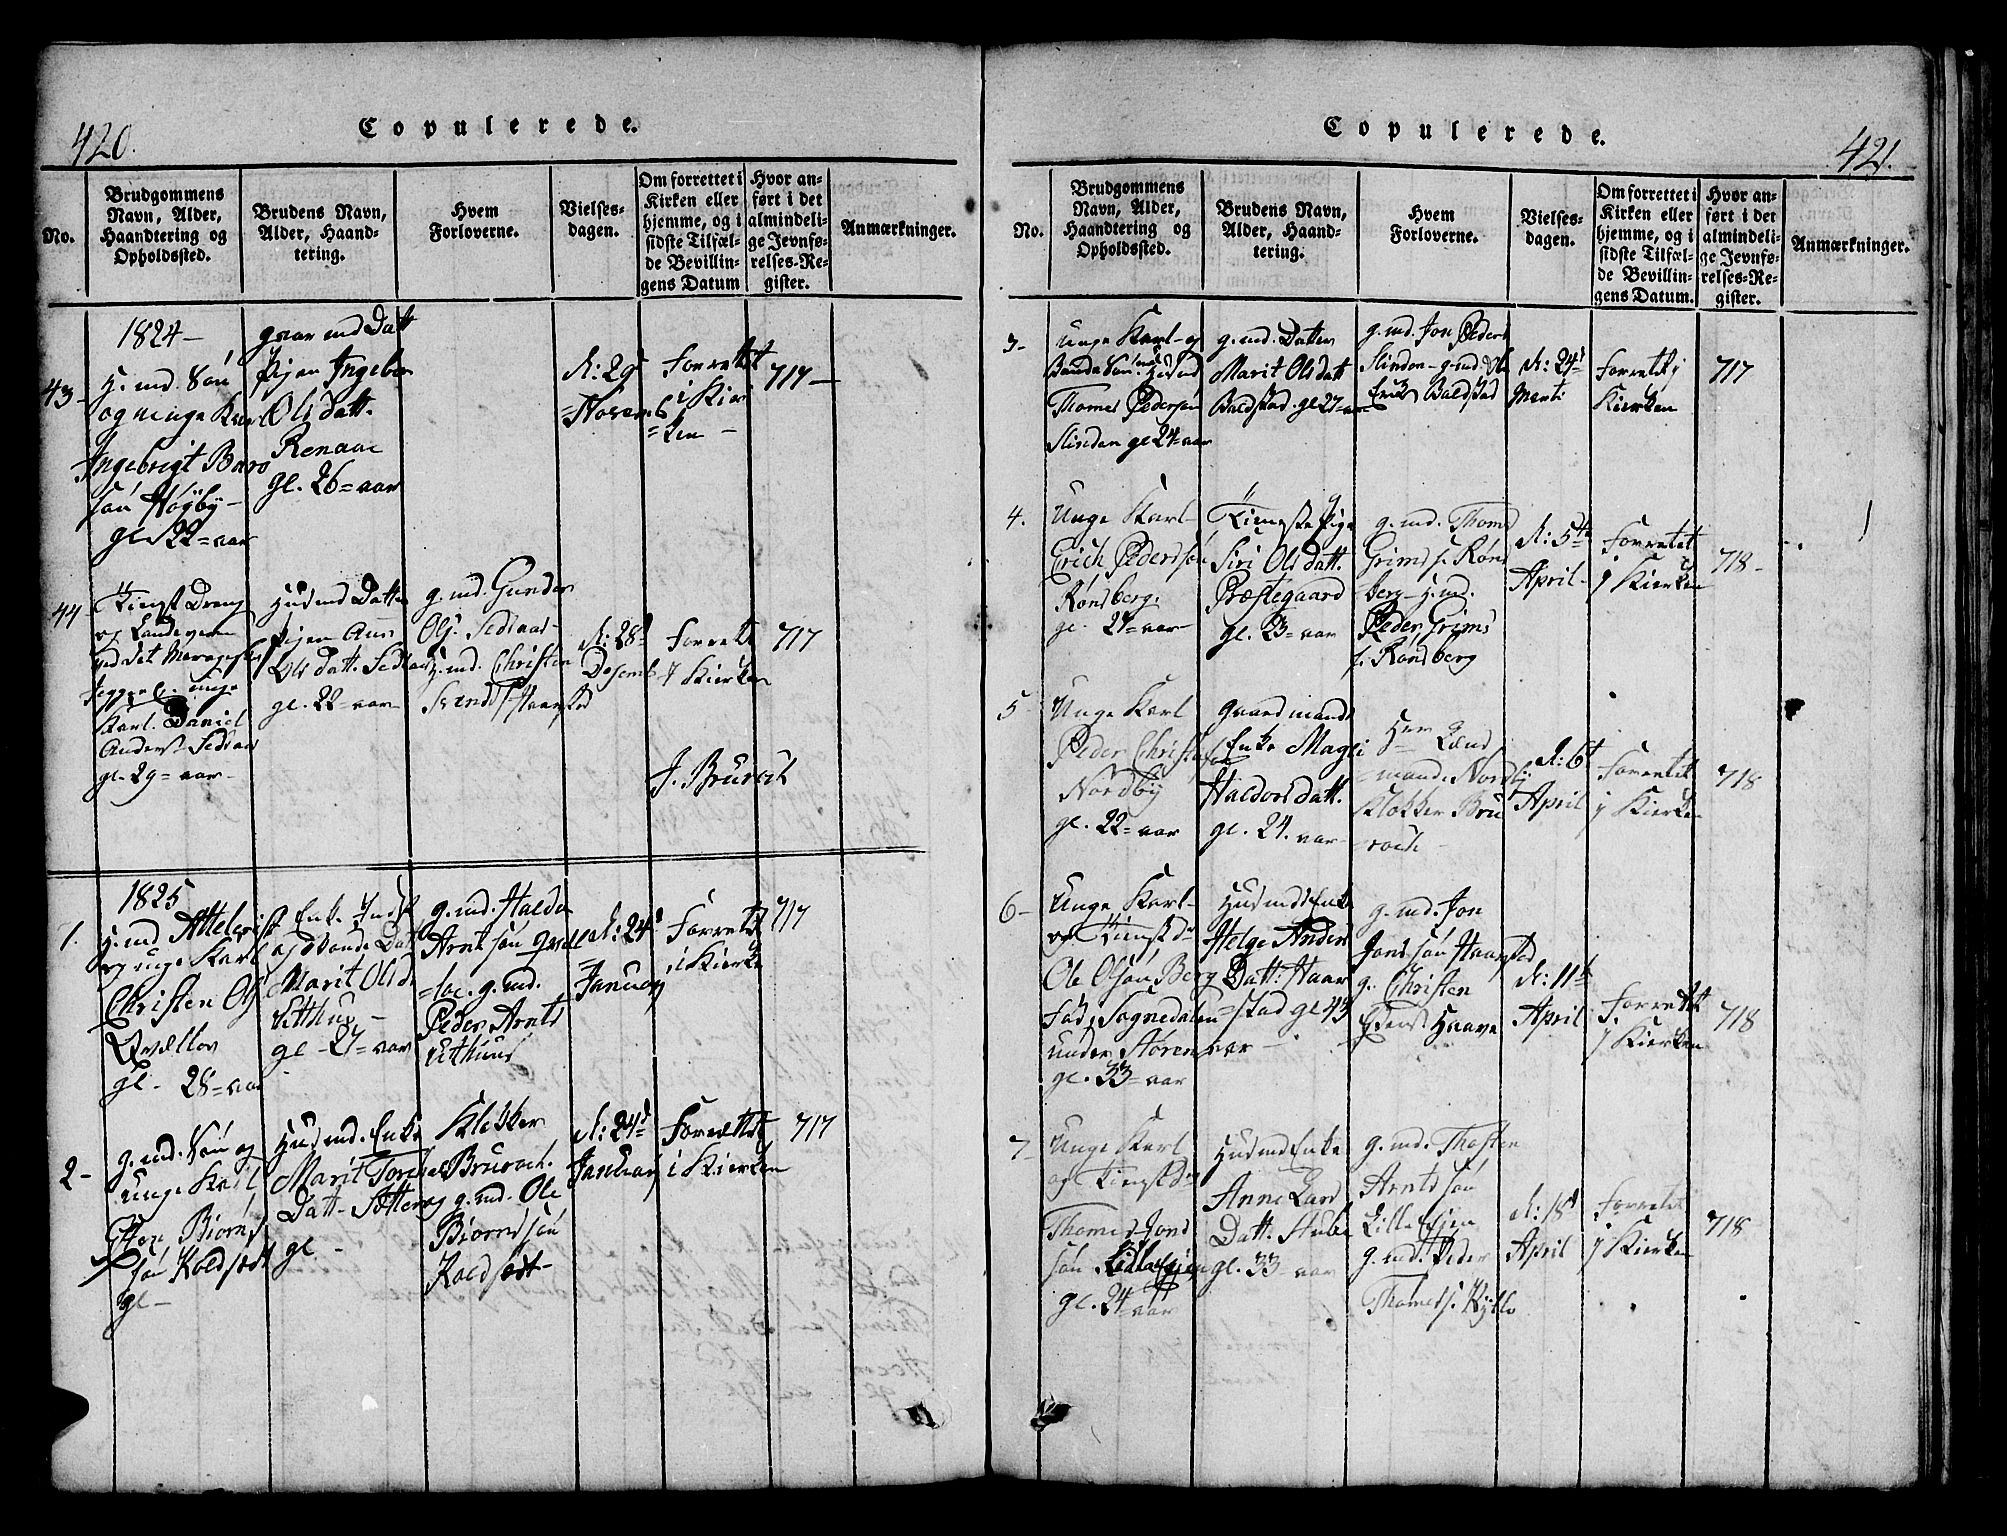 420.
Copulerede.
No.
Brudgommens
Navn, Alder,
Haandtering og
Opholdssted.
Brudens Navn,
Alder, Haand-
tering.
Hvem
Forloverne.
Vielses-
dagen.
Om forrettet i
Kirken eller
hjemme, og i
sidste Tilfæl-
de Bevillin-
gens Datum
Hvor an-
ført i det
almindeli-
ge Jevnfø-
relses-Re-
gister.
Anmærkninger.
1824-
43-
H. md. Søn
og unge Karl
Ingebrigt
søn Høyby-
gl. 22= aar
gaar md Datt
Pigen Ingebor
Olsdatt.
Renaae
gl. 26=aar
d: 29
=Novemb
Forrettet
i Kir
=ken -
717-
44-
Tienst Dreng
unge
Karl. Daniel
Anders.
gl. 29= aar-
Husmd Datter
Pigen Ann
Olsdatt.
gl. 22= aar-
g. md. Gunder
Ols.
H. md. Christen
Svends.
d: 28d
Desemb
Forrett
i Kierken
717
J. Brurock
1825
1.
H. md
og unge Karl
Christen Ols
gl- 28=aar
Enke
Marit Olsd
gl - 27= aar
g. md. Haldo
Arntsøn
g. md.
Peder Arnts
Uthuus
d: 24d
=Januar
Forrettet
i Kierke
717
2-
g. md. Søn og
unge Karl
Biørns
søn Koldsødt
gl-
Husmd. Enke
Marit
Datt-
gl -
Klokker
Brurock.
g. md. Ole
Biørnssøn
Koldsødt-
d: 24d
Januar
Forrettet
i Kierken
717
Copulerede.
421.
No.
Brudgommens
Navn, Alder,
Haandtering og
Opholdssted.
Brudens Navn,
Alder, Haand-
tering.
Hvem
Forloverne.
Vielses-
dagen.
Om forrettet i
Kirken eller
hjemme, og i
sidste Tilfæl-
de Bevillin-
gens Datum.
Hvor an-
ført i det
almindeli-
ge Jevnfø-
relses-Re-
gister.
Anmærkninger.
3-
Unge Karl- og
Thomes Pedersøn
Slinden gl 24=aar
g. md. Datter
Marit Olsdatt
Baldstad. gl 27=aar
g. md. Jon Peders
Slinden- g. md. Ole
Erich Baldstad
d: 24d
Marti
Forrettet i
Kierken
717
4.
Unge Karl-
Erich Pederssøn
Rønsberg.
gl. 27= aar-
Tieneste Pige
Siri Olsdatt.
Præstegaard
gl. 23= aar
g. md. Thomes
Grims s. Røns
berg- H. md.
Peder Grims
s. Rønsberg
d: 5te
April-
Forrettet
i Kierken
718-
5-
Unge Karl
Peder Christo
Nordby
gl. 22= aar
Gaardmands
Enke Magli
Haldorsdatt.
gl. 24. aar-
Hr Lænds
=mand Nordby
Klokker Bru
rock-
d: 6t
April
Forrettet
i Kierken
718
6-
Unge Karl-
og Tienstdr
Ole Olsøn Berg
Fød i Sognedalen
under Støren
gl. 33= aar
Husmds Enke
Helge Anders
Datt: Haar
=stad gl 43
aar -
g. md. Jon
Jonssøn Haarstad
g. Christen
Haave
d: 11te
April
Forrettet
i Kierken
718
7-
Unge Karl
og Tienstdr
Thomes Jons
søn Lilleøyen
gl. 24= aar
Husmd Enke
Anne Lars
Datt. Stube
gl. 33- aar
g. md. Thosten
Arntssøn
Lilleøyen
g. md. Peder
Thomes s. Kyllo
d: 18d
April
Forrettet
i Kierken
718